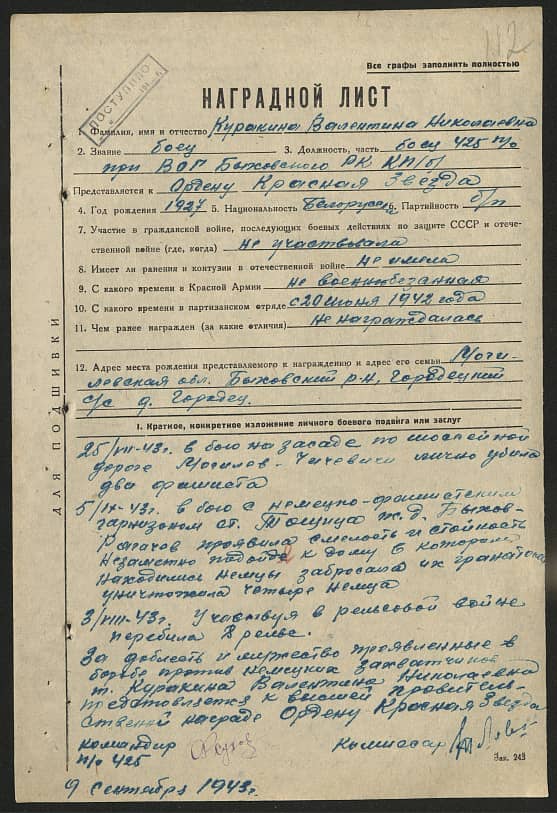 112
Все графы заполнять полностью
ПОСТУПИЛО
НАГРАДНОЙ ЛИСТ
1. Фамилия, имя и отчество Куракина Валентина Николаевна
2. Звание боец 3. Должность, часть боец 425 п/о
при ВОГ Быховского РК КП/б/Б
Представляется к Ордену Красная Звезда
4. Год рождения 1927 5. Национальность Белорусска 6. Партийность б/п
7. Участие в гражданской войне, последующих боевых действиях по защите СССР и отече-
ственной войне (где, когда) не участвовала
8. Имеет ли ранения и контузии в отечественной войне не имела
9. С какого времени в Красной Армии не военнообезанная
10. С какого времени в партизанском отряде с 20 июня 1942 года
11. Чем ранее награжден (за какие отличия) не награждалась
12. Адрес места рождения представляемого к награждению и адрес его семьи Моги-
левская обл. Быховский р-н, Городецкий
с/с д. Городец.
ДЛЯ ПОДШИВКИ
I. Краткое, конкретное изложение личного боевого подвига или заслуг
25/VIII-43г. в бою на засаде по шоссейной
дороге Могилев - Чичевичи лично убила
два фашиста
5/IX-43г. в бою с немецко-фашистским
гарнизоном ст. Тощица ж.д. Быхов-
Рагачов проявила смелость и стойкость
Незаметно подойдя к дому в котором
находились немцы забросала их гранатами
уничтожала четыре немца
3/VIII-43г. Участвуя в рельсовой войне
перебила 2 рельс.
За доблесть и мужество проявленные в
борьбе против немецких захватчиков
т. Куракина Валентина Николаевна
представляется к высшей правитель-
ственной награде Ордену Красная Звезда
командир
п/о 425
комиссар
9 сентября 1943г.
Зак. 243